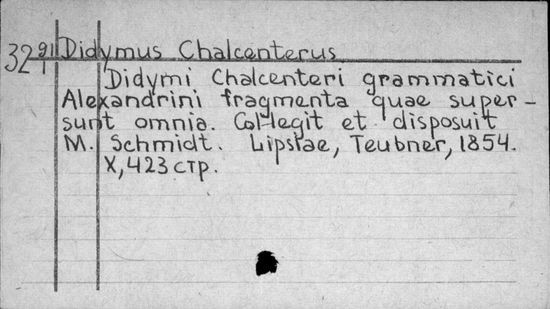 32 91/1 Didymus Chalcenterus
Didymi Chalcenteri grammatici
Alexandrini fragmenta quae super-
sunt omnia. Collegit et disposuit
M. Schmidt. Lipsiae, Teubner, 1854.
X, 423 стр.